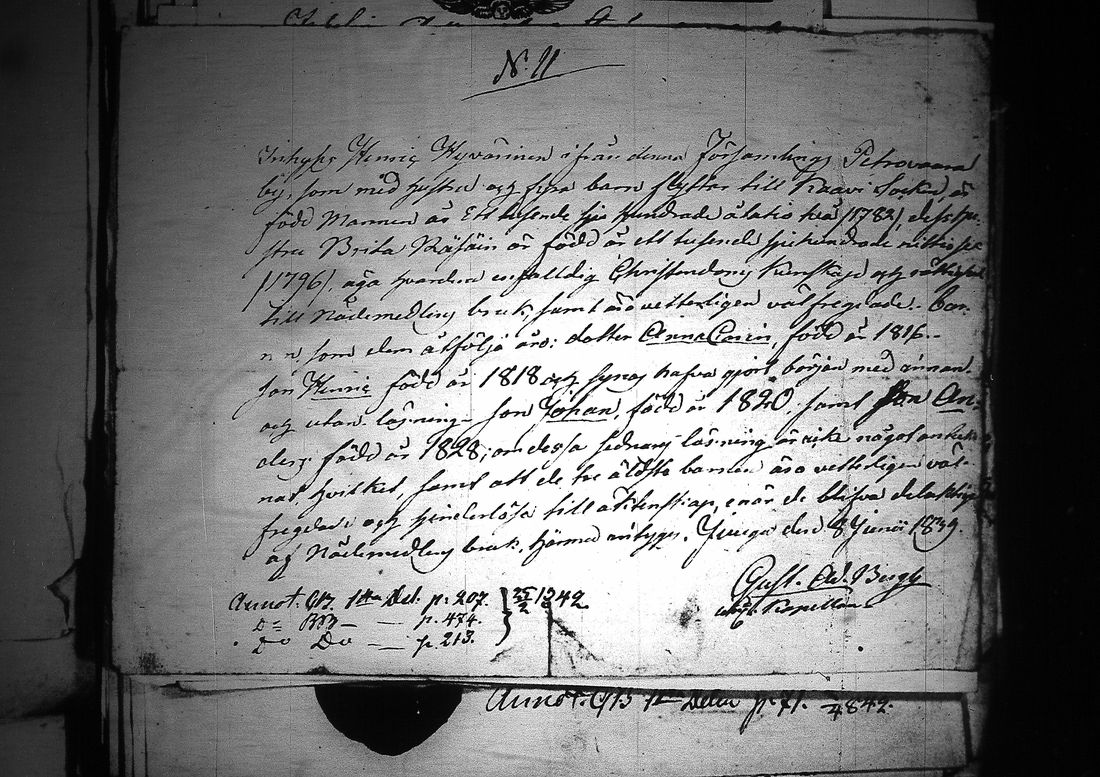 N:11
Inhyses Henric Hyvärinen ifrån denna Församlings Petrovaara
by, som med hustru och fyra barn flytter till Kaavi Socken, är
född Mannen år Ett tusende sju hundrade åttatio två /1782/, dess hu-
stru Brita Räsäin är född år ett tusende sjuhundrade nittio sex
/1796/ äga hvardera enfaldig Christendoms kunskap och rättighet
till Nådemedlens bruk, samt äro vetterligen välfregdade:- bar-
nen, som dem åtfölja äro: dotter Anna Carin, född år 1816-
Son Henric född år 1818 och synas hafva gjort början med innan
och utan läsning- Son Johan, född år 1820, samt Son An-
ders född år 1828; om dessa sednares läsning är icke något anteck-
nat hvilket, samt att de tre äldsta barnen äro vetterligen väl-
fregdade och hinderlösa till äktenskap, enär de blifva delaktige
af Nådemedlens bruk, härmed intygas. Juuga den 8 Junii 1839.
Gust. Ad. Bergh
Kapellan
Annot. CB 1sta Del. p. 207. } 25/2 1842
Do BB — — p. 474.
Do Do — p. 213.
Annot. CB 1sta Delen p. 71. 1842.